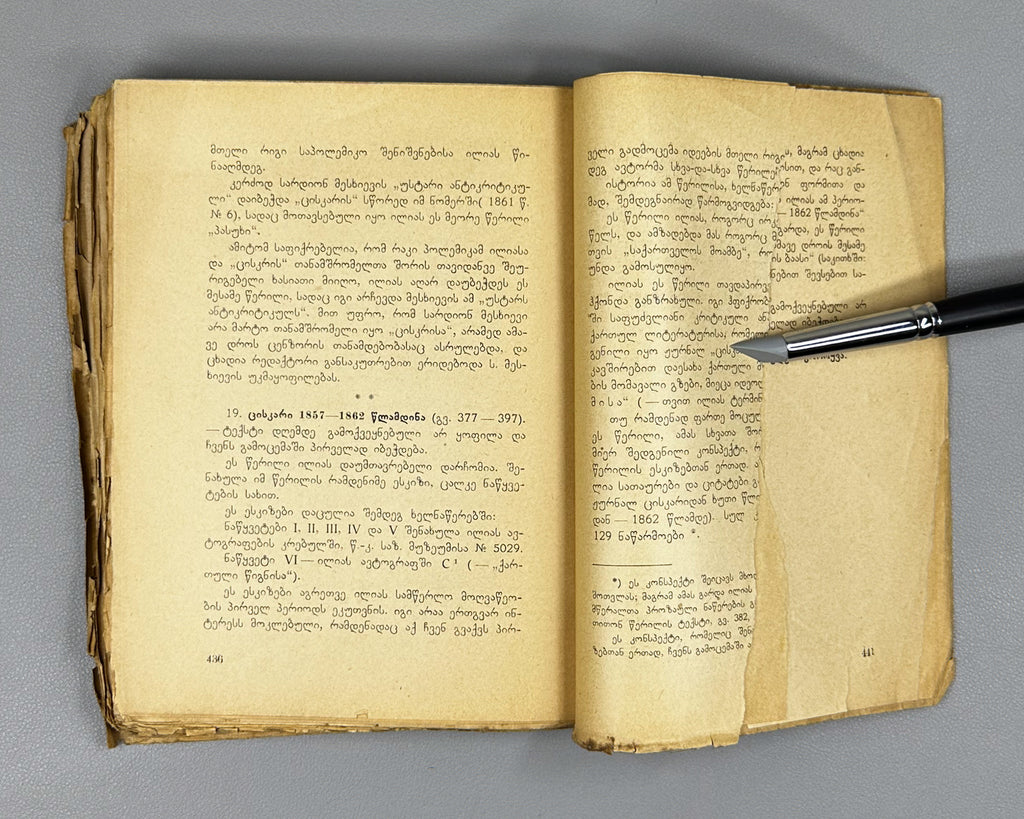 მთელი რიგი საპოლემიკო შენიშვნებისა ილიას წი-
ნააღმდეგ.
კერძოდ სარდიონ მესხიევის „უსტარი ანტიკრიტიკუ-
ლი“ დაიბეჭდა „ცისკარის“ სწორედ იმ ნომერში( 1861 წ.
№ 6), სადაც მოთავსებული იყო ილიას ეს მეორე წერილი
„პასუხი“.
ამიტომ საფიქრებელია, რომ რაკი პოლემიკამ ილიასა
და „ცისკრის“ თანამშრომელთა შორის თავიდანვე შეუ-
რიგებელი ხასიათი მიიღო, ილიას აღარ დაუბეჭდეს ეს
მესამე წერილი, სადაც იგი არჩევდა მესხიევის ამ „უსტარს
ანტიკრიტიკულს“. მით უფრო, რომ სარდიონ მესხიევი
არა მარტო თანამშრომელი იყო „ცისკრისა“, არამედ ამა-
ვე დროს ცენზორის თანამდებობასაც ასრულებდა, და
ცხადია რედაქტორი განსაკუთრებით ერიდებოდა ს. მეს-
ხიევის უკმაყოფილებას.
* *
19. ცისკარი 1857—1862 წლამდინა (გვ. 377 — 397).
— ტექსტი დღემდე გამოქვეყნებული არ ყოფილა და
ჩვენს გამოცემაში პირველად იბეჭდება.
ეს წერილი ილიას დაუმთავრებელი დარჩომია. შე-
ნახულა იმ წერილის რამდენიმე ესკიზი, ცალკე ნაწყვე-
ტების სახით.
ეს ესკიზები დაცულია შემდეგ ხელნაწერებში:
ნაწყვეტები I, II, III, IV და V შენახულა ილიას ავ-
ტოგრაფების კრებულში, წ.-კ. საზ. მუზეუმისა № 5029.
ნაწყვეტი VI — ილიას ავტოგრაფში C¹ ( — „ქარ-
თული წიგნისა“).
ეს ესკიზები აგრეთვე ილიას სამწერლო მოღვაწეო-
ბის პირველ პერიოდს ეკუთვნის. იგი არაა ერთგვარ ინ-
ტერესს მოკლებული, რამდენადაც აქ ჩვენ გვაქვს პირ-
436
ველი გადმოცემა იდეების მთელი რიგი
დეგ ავტორმა სხვა-და-სხვა წერილე
ისტორია ამ წერილისა, ხელნაწერ
მად, შემდეგნაირად წარმოგვიდგება:
ეს წერილი ილიას, როგორც
წელს, და ამზადებდა მას როგორც
თვის „საქართველოს მოამბე“,
უნდა გამოსულიყო.
ილიას ეს წერილი თავდაპირვე
ჰქონდა განზრახული. იგი ჰფიქრობ
საფუძვლიანი კრიტიკული
ქართულ ლიტერატურისა, რომელ
გენილი იყო ჟურნალ „ცისკა
კავშირებით დაესახა ქართული
ბის მომავალი გზები, მიეცა იდეოლ
მისა“ ( — თვით ილიას ტერმინ
თუ რამდენად ფართე მოცულ
ეს წერილი, ამას სხვათა შორ
მიერ შედგენილი კონსპექტი,
წერილის ესკიზებთან ერთად.
ლია სათაურები და ციტატები
ჟურნალ ცისკარიდან ხუთი წლ
დან — 1862 წლამდე). სულ
129 ნაწარმოები *.
*) ეს კონსპექტი შეიცავს მხოლ
მოთვლას; მაგრამ ამას გარდა ილიას
მწერალთა პროზაული ნაწერების
თითონ წერილის ტექსტი, გვ. 382,
ეს კონსპექტი, რომელიც შენ
ზებთან ერთად, ჩვენს გამოცემაში
მაგრამ ცხადია
და რაც გან-
ფორმითა და
ილიას ამ პერიო-
— 1862 წლამდინა“
გარდა, ეს წერილი
ამავე დროის მესამე
ის ბაასი“ (საკითხში:
ნებით შევსებით სა-
გამოქვეყნებული არ
441